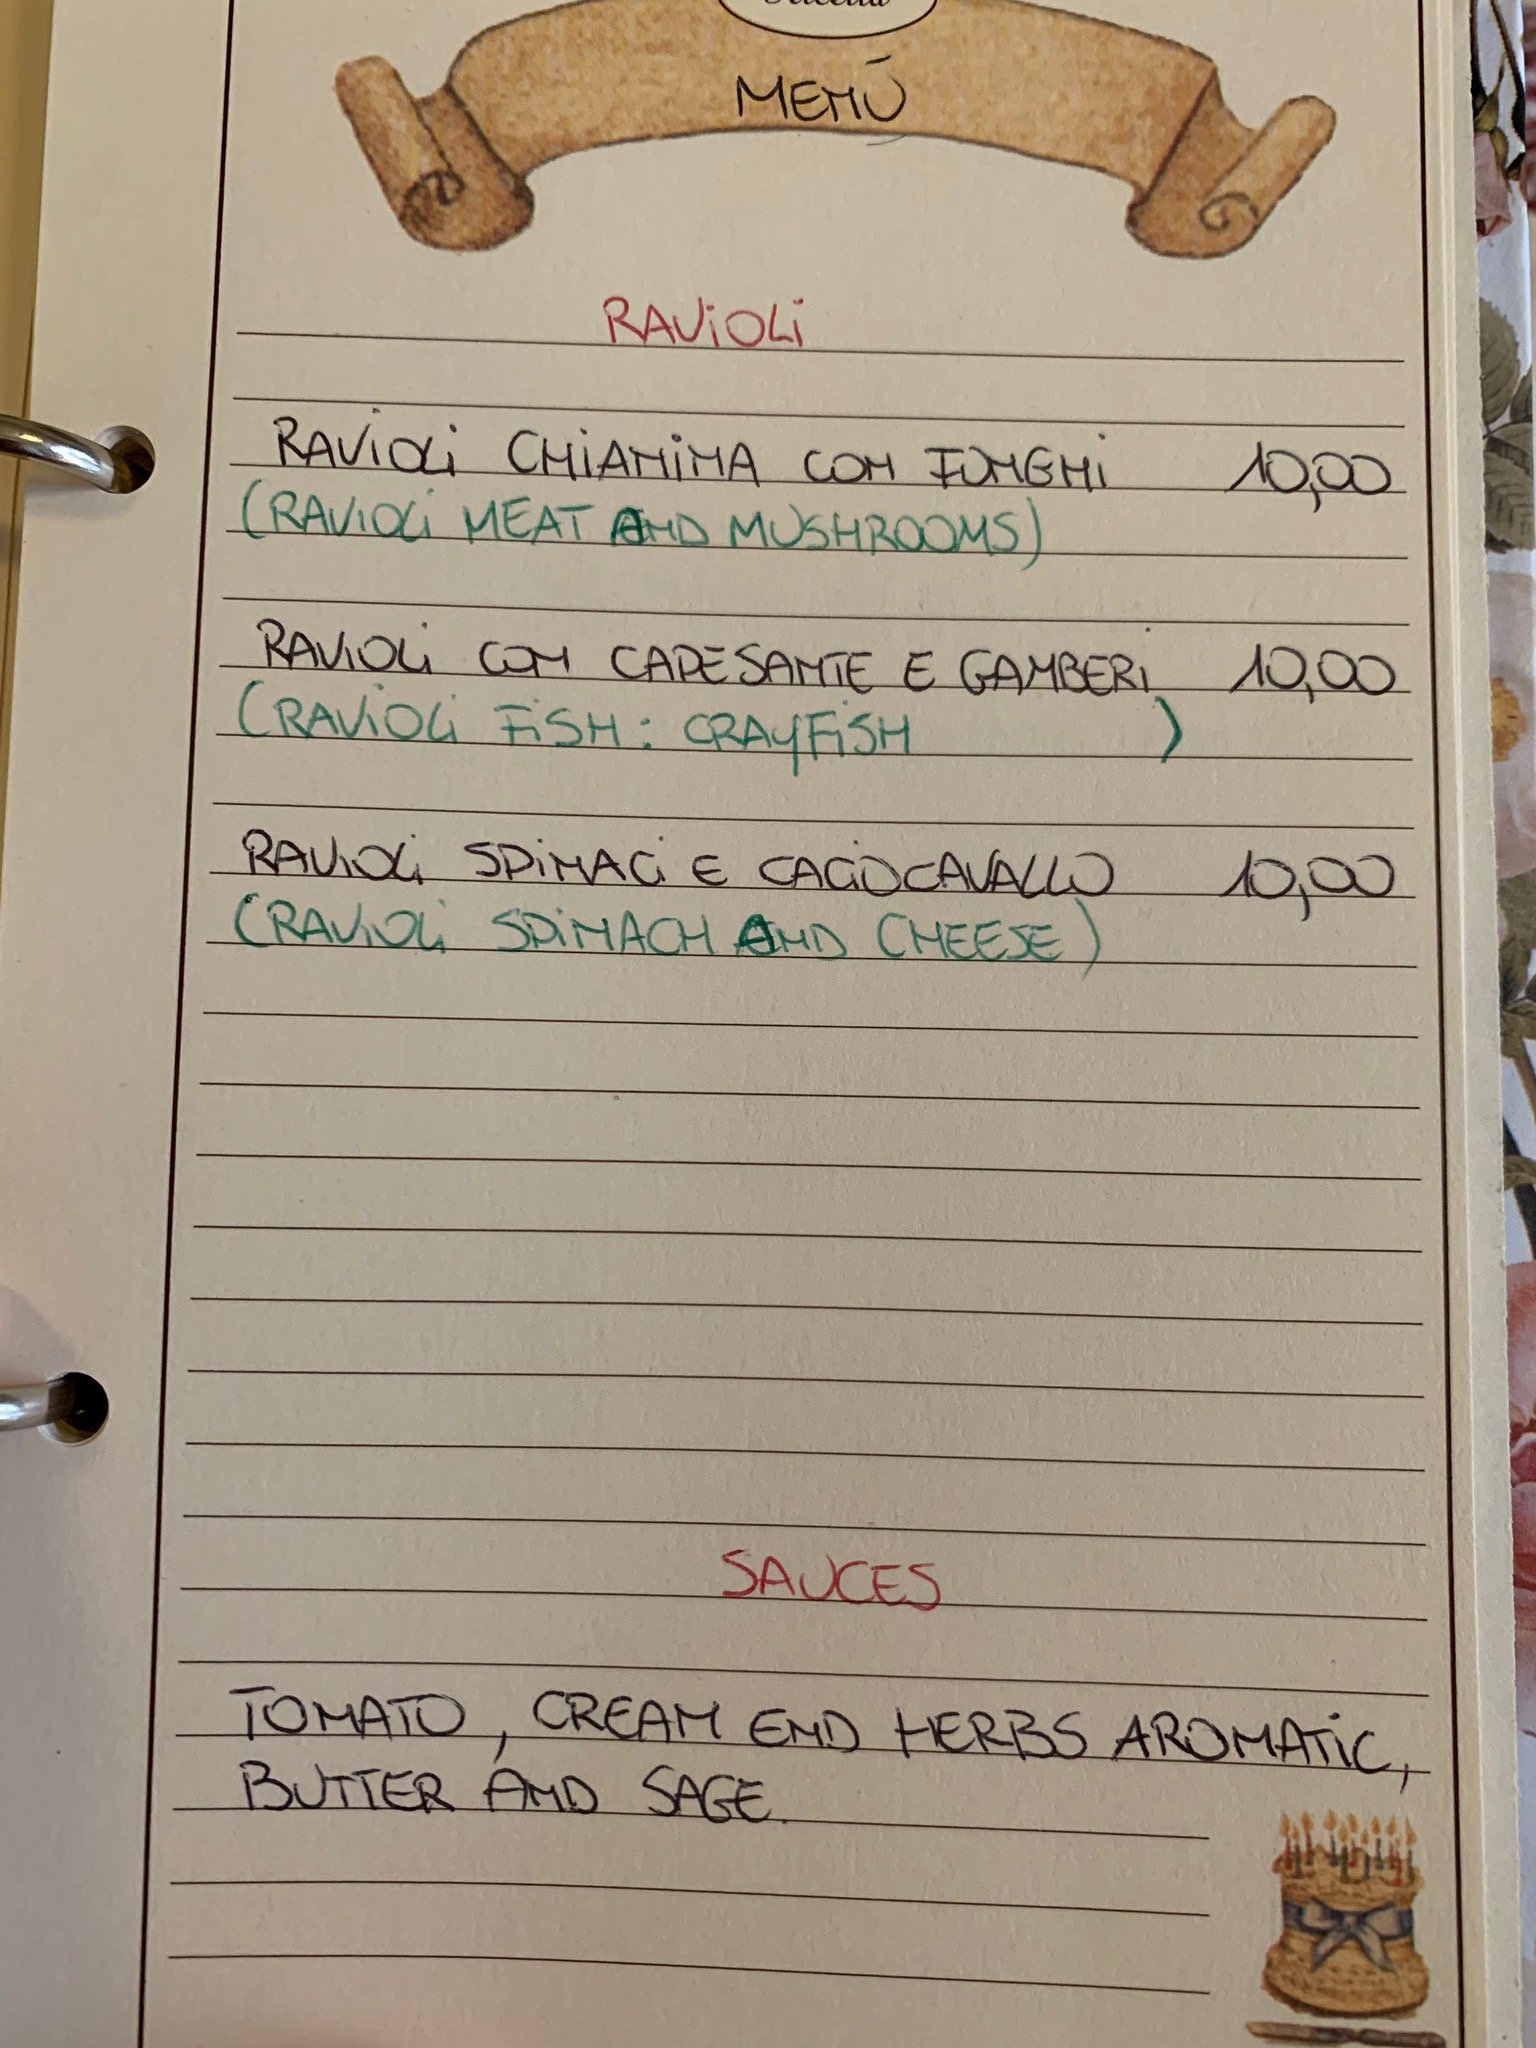 MENÚ
RAVIOLI
RAVIOLI CHIANINA CON FUNGHI 10,00
(RAVIOLI MEAT AND MUSHROOMS)
RAVIOLI CON CAPESANTE E GAMBERI 10,00
(RAVIOLI FISH: CRAYFISH )
RAVIOLI SPINACI E CACIOCAVALLO 10,00
(RAVIOLI SPINACH AND CHEESE)
SAUCES
TOMATO, CREAM END HERBS AROMATIC,
BUTTER AND SAGE.